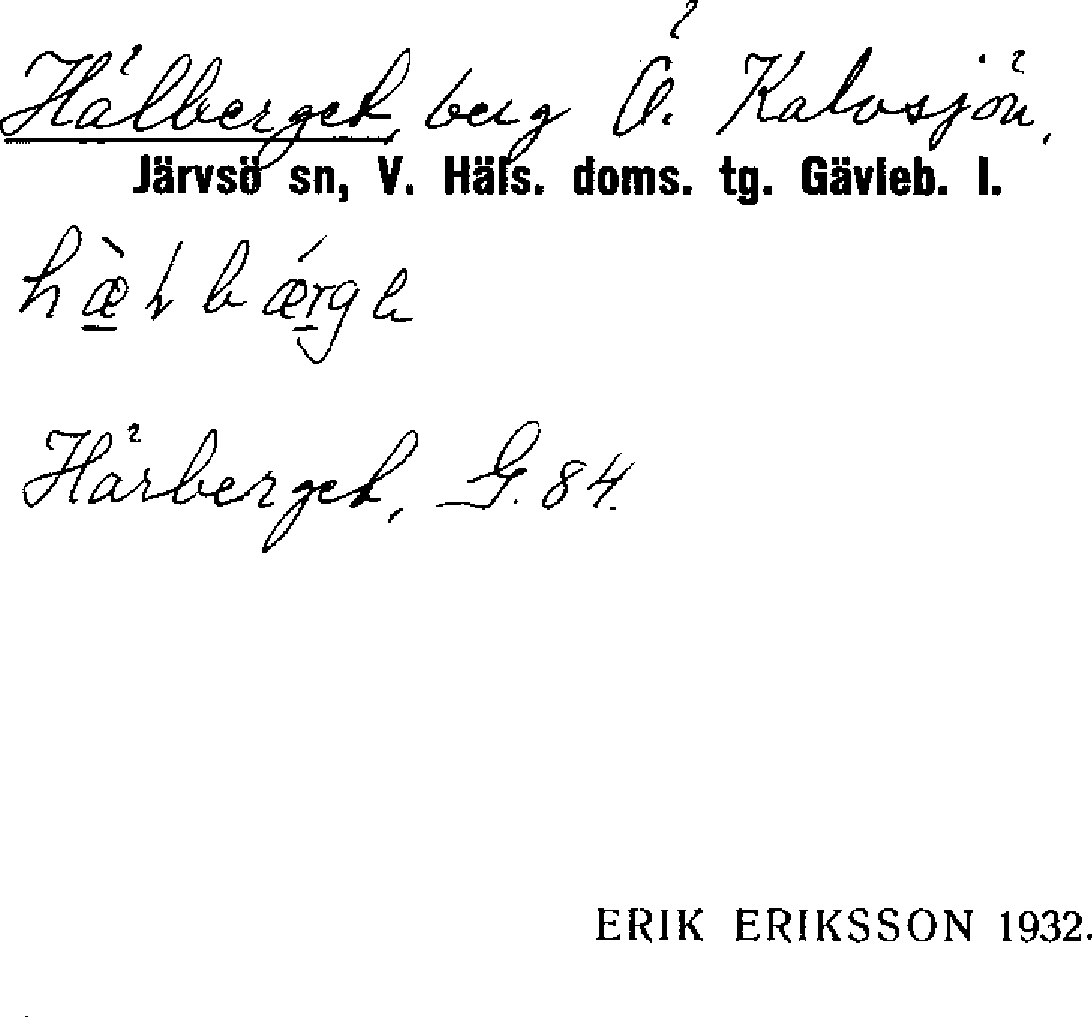 Hälberget, berg Ö. Kalvsjön,
Järvsö sn, V. Häls. doms. tg. Gävleb. l.
Härberget, G. 84.
ERIK ERIKSSON 1932.